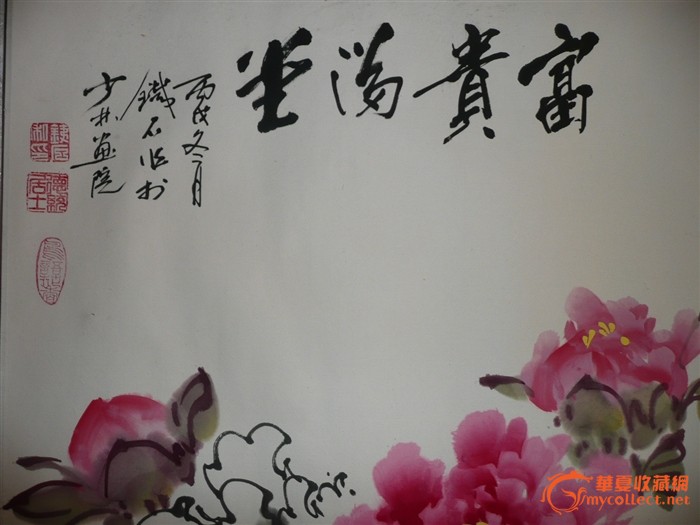 富貴滿堂
丙戌冬月
鐵石作於
少林畫院
居士
華夏收藏網
mycollect.net